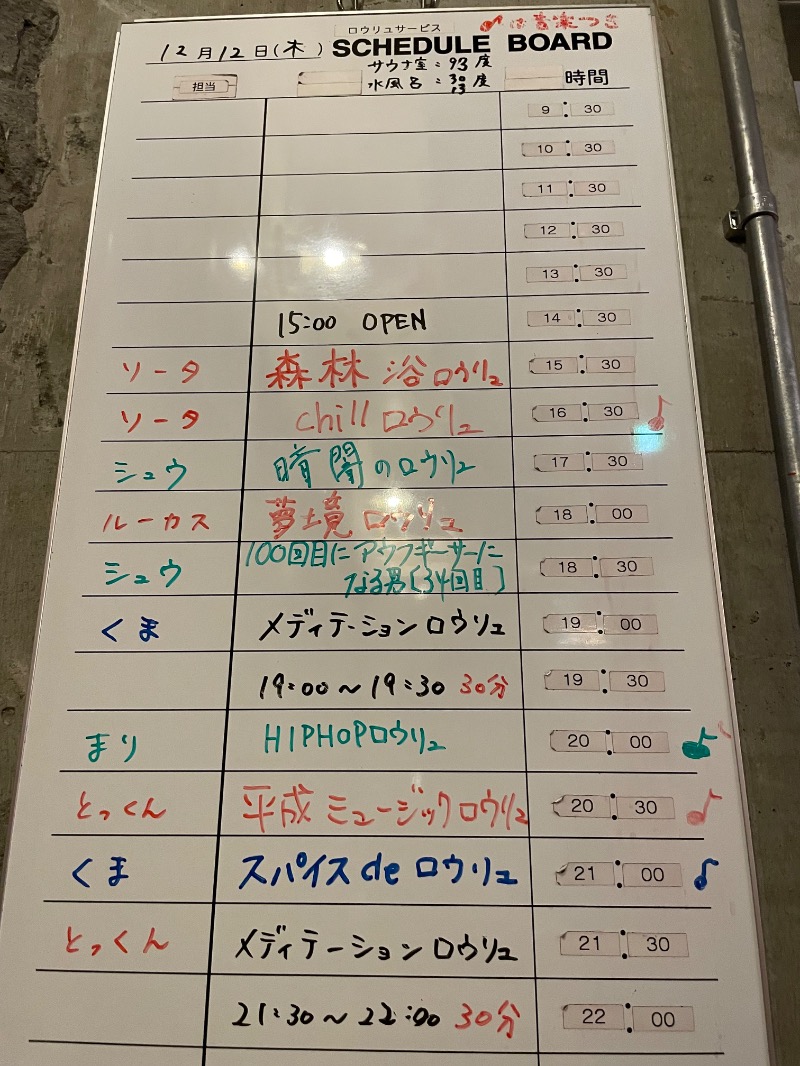 ロウリュサービス
♪は音楽つき
12月12日(木) SCHEDULE BOARD
サウナ室:93度
水風呂:30 13度
担当 時間
9:30
10:30
11:30
12:30
13:30
15:00 OPEN 14:30
ソータ 森林浴ロウリュ 15:30
ソータ chillロウリュ 16:30 ♪
シュウ 暗闇のロウリュ 17:30
ルーカス 夢境ロウリュ 18:00
シュウ 100回目にアウフギーサーに
なる男[34回目] 18:30
くま メディテーションロウリュ 19:00
19:00〜19:30 30分 19:30
まり HIPHOPロウリュ 20:00 ♪
とっくん 平成ミュージックロウリュ 20:30 ♪
くま スパイスdeロウリュ 21:00 ♪
とっくん メディテーションロウリュ 21:30
21:30〜22:00 30分 22:00